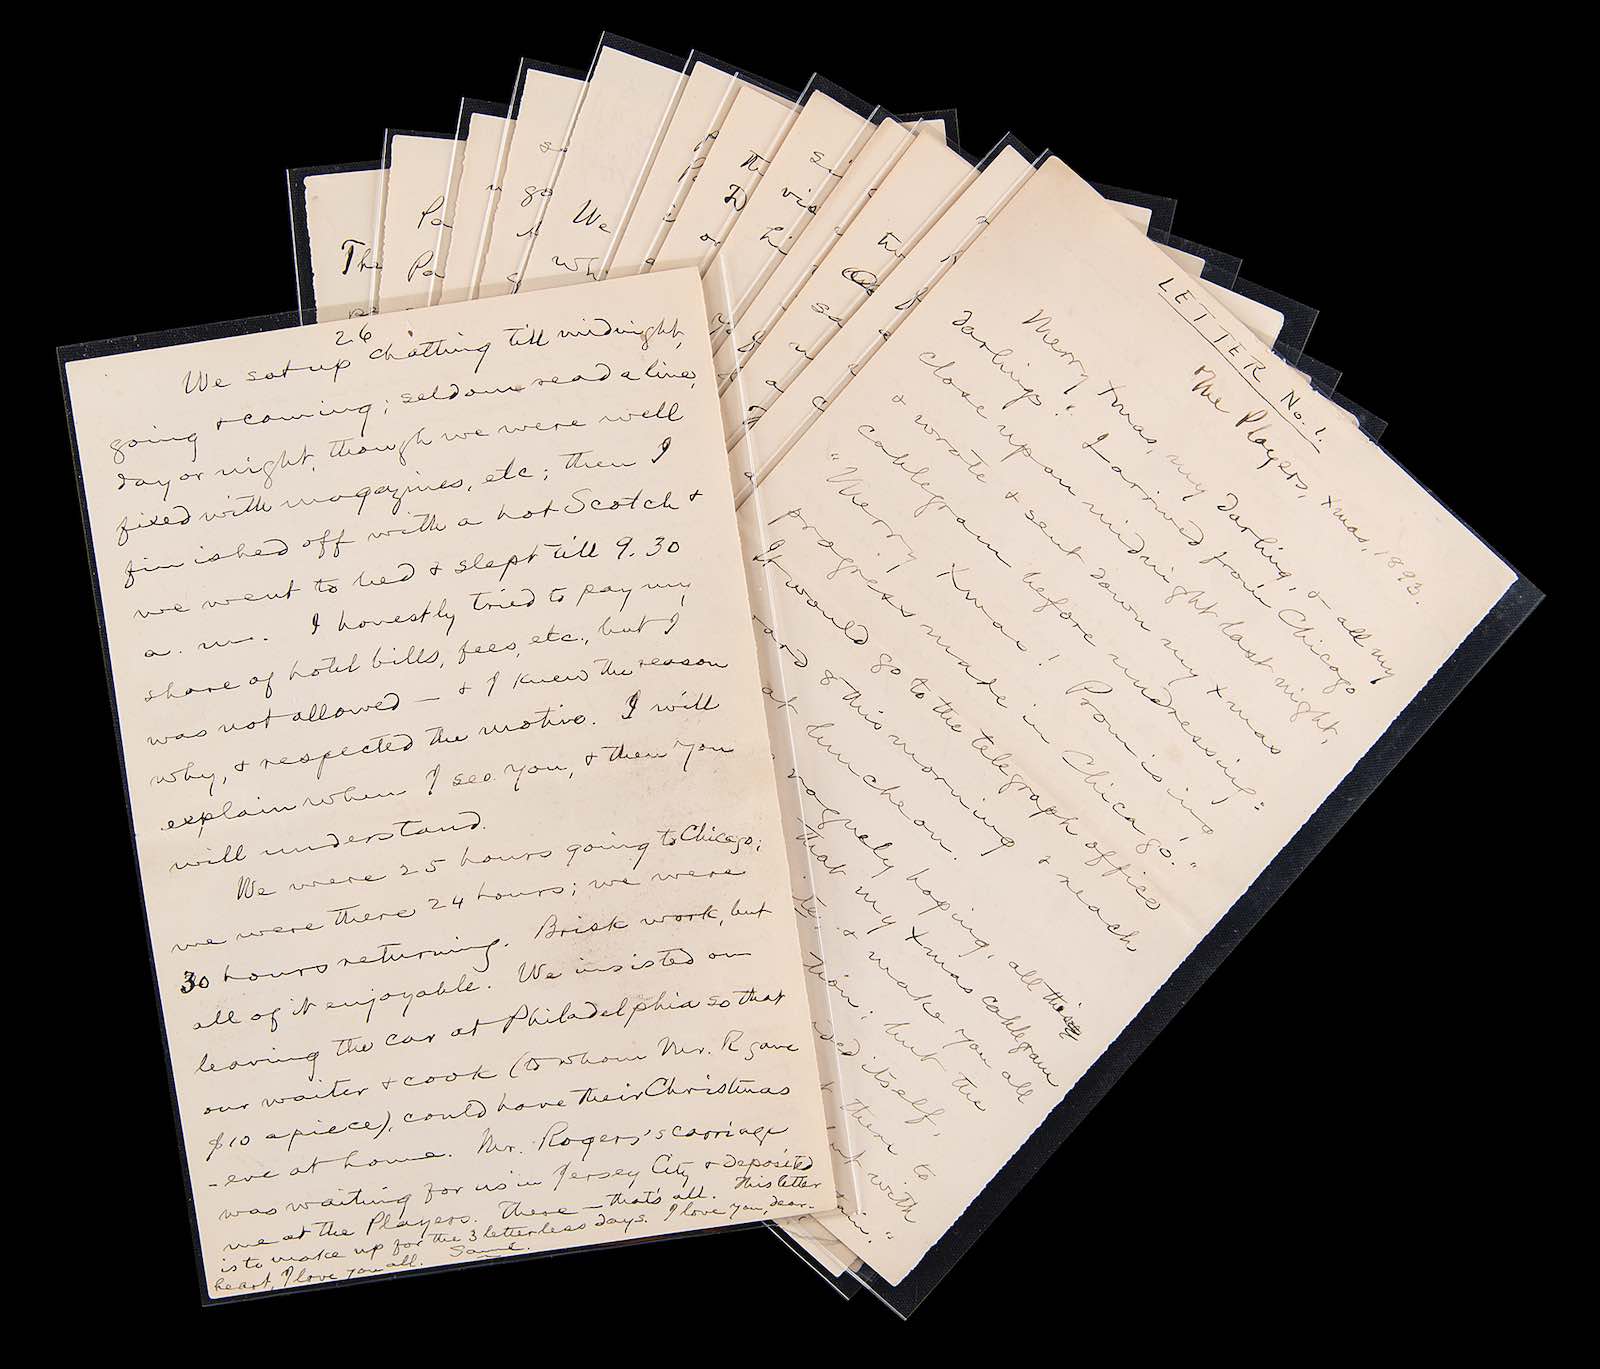 26
We sat up chatting till midnight,
going & coming; seldom read a line,
day or night, though we were well
fixed with magazines, etc; then I
finished off with a hot Scotch &
we went to bed & slept till 9.30
a. m. I honestly tried to pay my
share of hotel bills, fees, etc., but I
was not allowed — & I knew the reason
why, & respected the motive. I will
explain when I see you, & then you
will understand.
We were 25 hours going to Chicago;
we were there 24 hours; we were
30 hours returning. Brisk work, but
all of it enjoyable. We insisted on
leaving the car at Philadelphia so that
our waiter & cook (to whom Mr. R gave
$10 apiece), could have their Christmas
-eve at home. Mr. Rogers's carriage
was waiting for us in Jersey City & deposited
me at the Players. There — that's all. This letter
is to make up for the 3 letterless days. I love you, dear-
heart, I love you all. Saml.
LETTER No. 1.
The Players, Xmas, 1893.
Merry Xmas, my darling, & all my
darlings! I arrived from Chicago
close upon midnight last night,
& wrote & sent down my Xmas
cablegram before undressing:
"Merry Xmas! Promising
progress made in Chicago."
It would go to the telegraph office
& this morning & reach
at luncheon.
vaguely hoping, all the
that my Xmas cablegram
& make you all
but the
itself,
there to
with
We
The